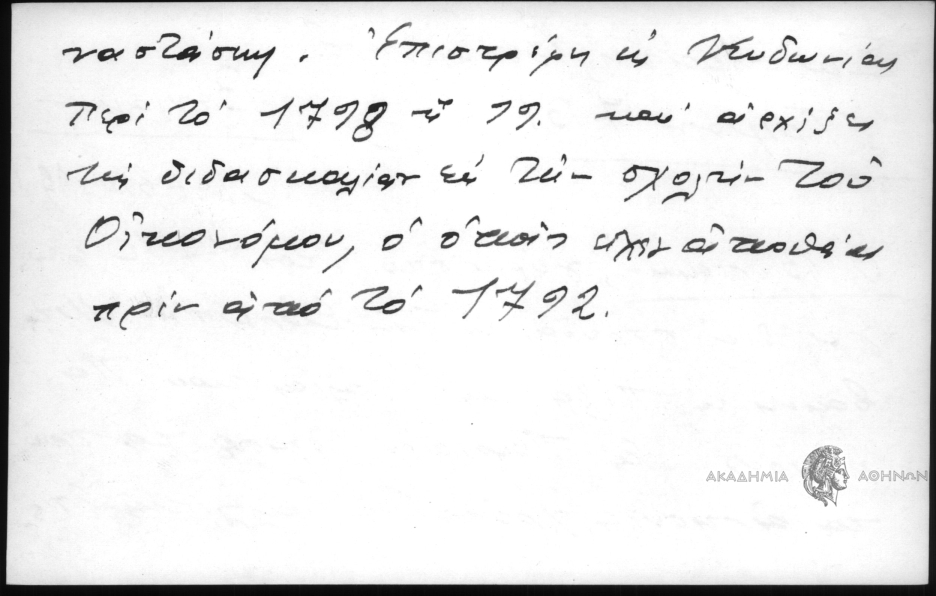 ναστάσης. Ἐπιστρέφει εἰς Κυδωνίας
περὶ τὸ 1798 ἢ 99. καὶ ἀρχίζει
τὴν διδασκαλίαν εἰς τὴν σχολὴν τοῦ
Οἰκονόμου, ὁ ὁποῖος εἶχεν ἀποθάνει
πρὶν ἀπὸ τὸ 1792.
ΑΚΑΔΗΜΙΑ ΑΘΗΝΩΝ